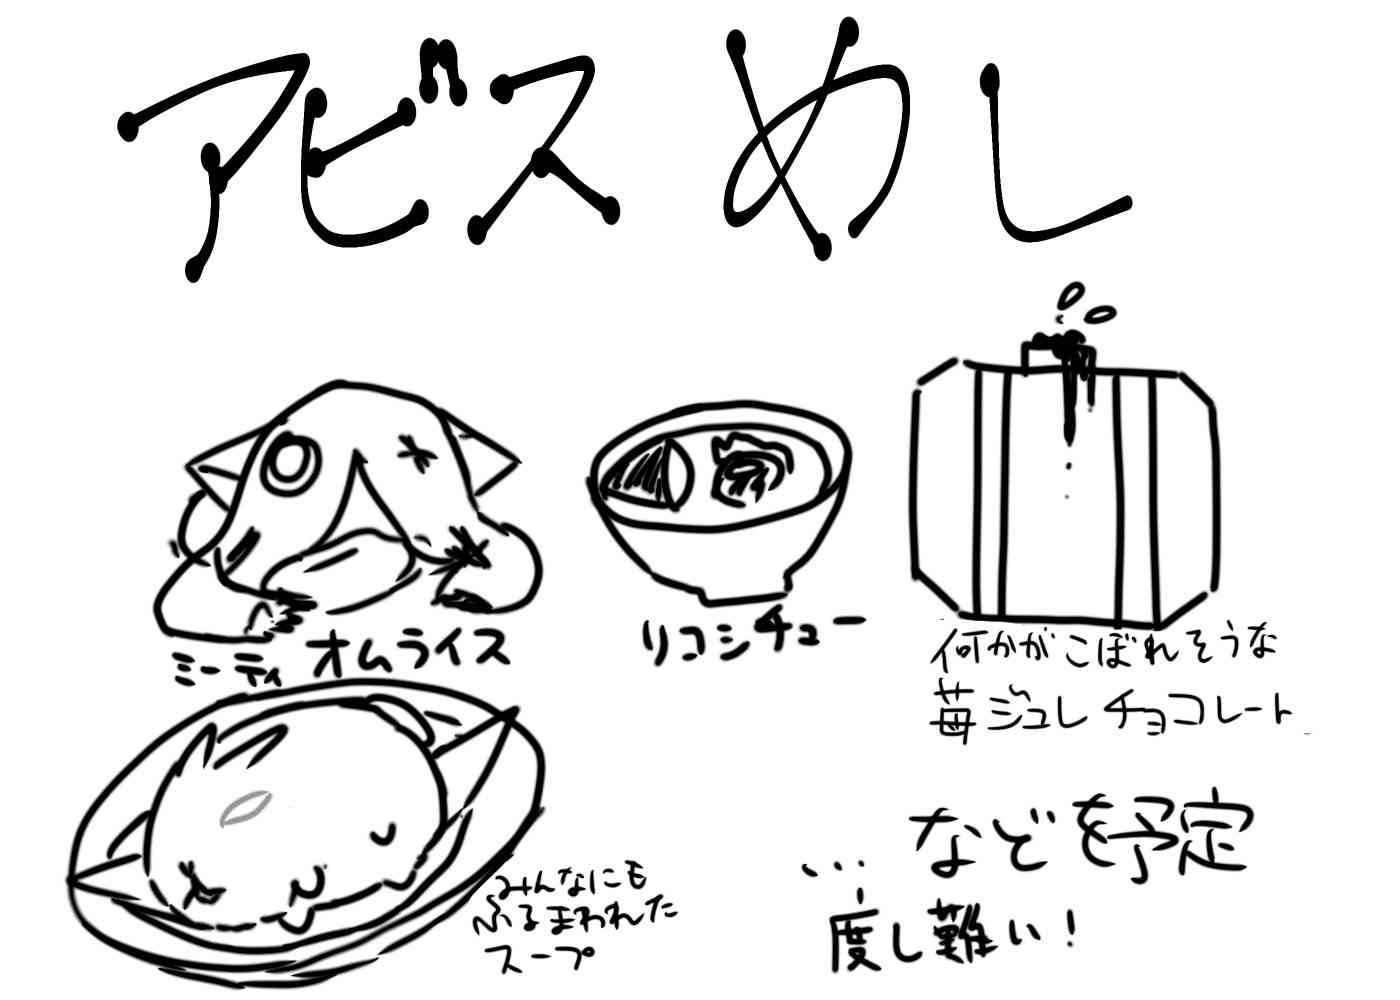 アビス めし
ミーティ オムライス
リコシチュー
何かがこぼれそうな
苺ジュレチョコレート
みんなにも
ふるまわれた
スープ
… などを予定
度し難い!